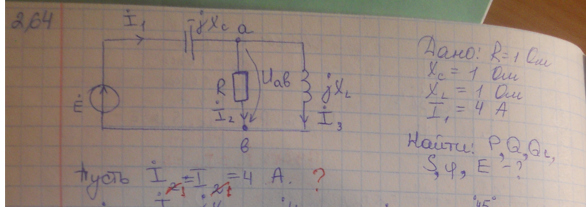 2,64
İ₁
jXc
a
R
Uав
jXL
Ė
İ₂
İ₃
в
Дано: R=1 Ом
Xc = 1 Ом
XL = 1 Ом
I₁ = 4 А
Найти: P, Q, QL,
S, φ, E - ?
Пусть İ = I = 4 А. ?